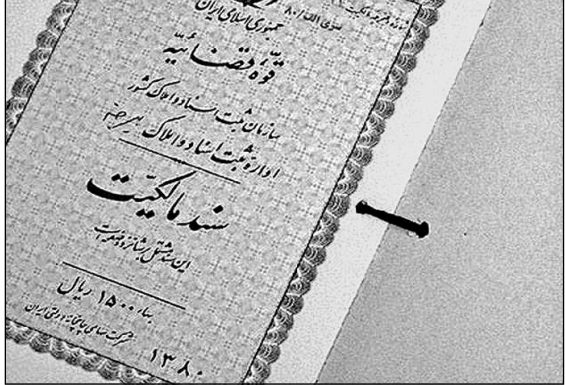 جمهوری اسلامی ایران
قوّه قضائیه
سازمان ثبت اسناد و املاک کشور
اداره ثبت اسناد و املاک بیرجند
سند مالکیّت
این سند مشتمل بر شانزده صفحه است
بهاء ۱۵۰۰ ریال
شرکت سهامی چاپخانه دولتی ایران
۱۳۸۰